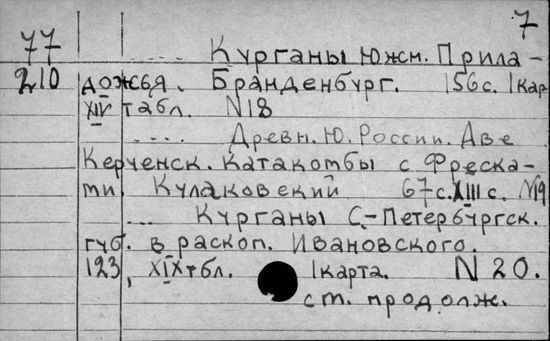 7
77 .... Курганы Южн. Прила-
210 дожья. Бранденбург. 156с. 1кар
XIV табл. N18
.... Древн. Ю. России. Две
Керченск. Катакомбы с Фреска-
ми. Кулаковский 67с. XIII с. N19
.... Курганы С.-Петербургск.
губ. в раскоп. Ивановского.
123, XIXтбл. 1карта. N 20.
ст. продолж.